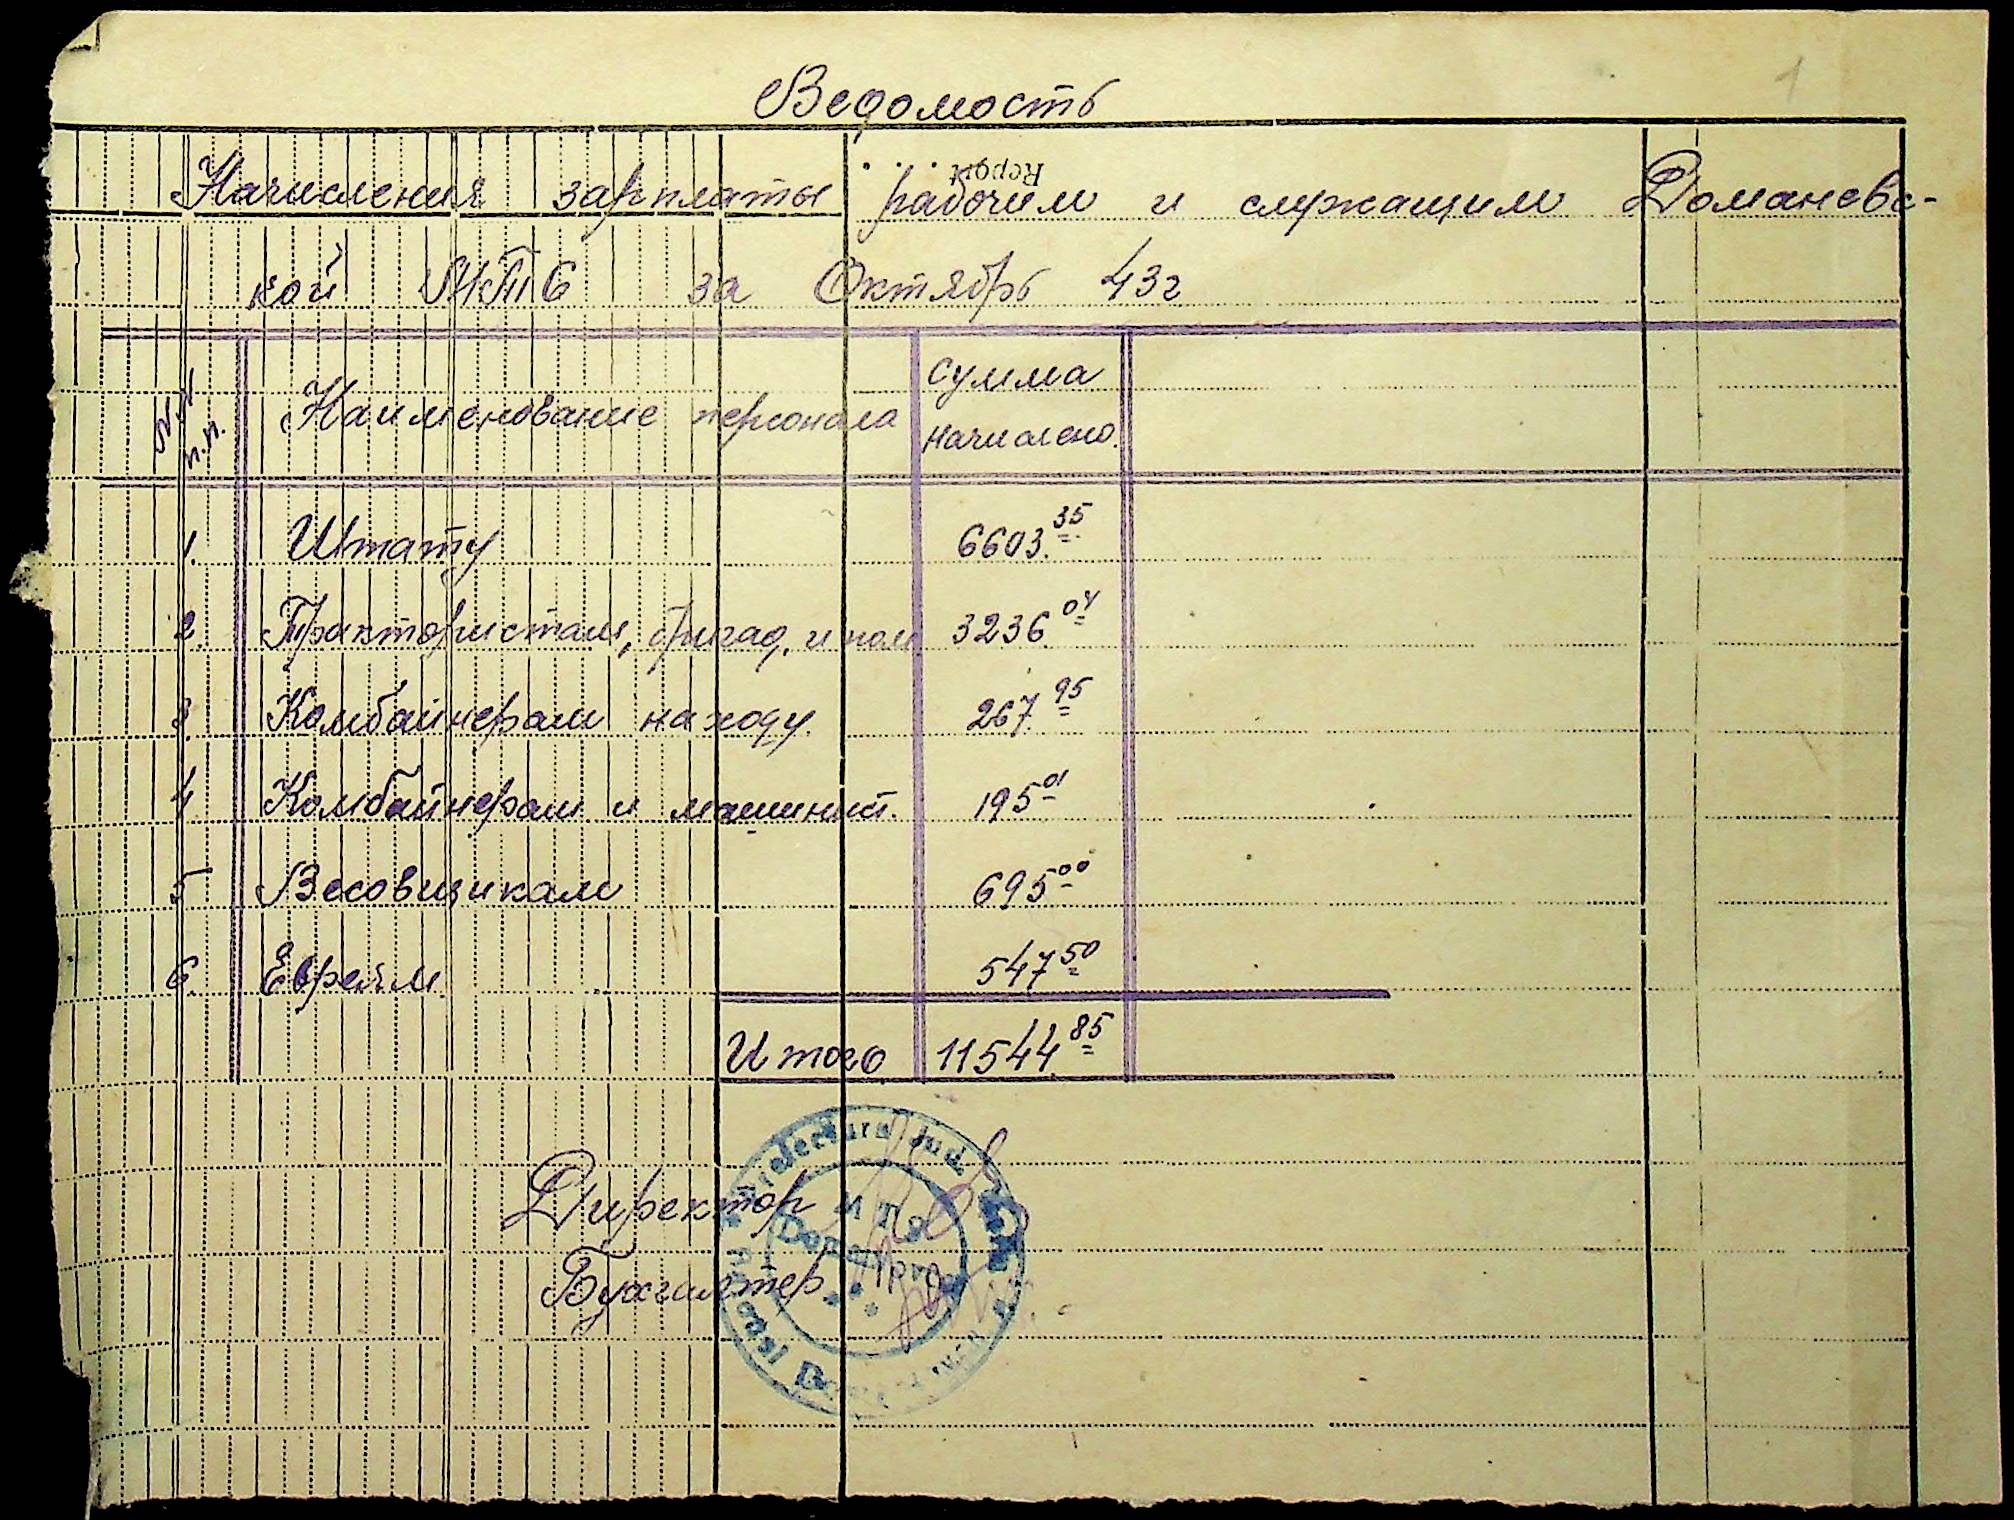 1
Ведомость
Report
Начисления зарплаты рабочим и служащим Доманевс-
кой МТС за Октябрь 43г
№№ п.п. Наименование персонала сумма начислено.
1. Штату 6603.35
2. Трактористам, бригад. и пом 3236.04
3. Комбайнерам на ходу. 267.95
4. Комбайнерам и машинист. 195 01
5 Весовщикам 695 00
6. Евреям 547 50
Итого 11544.85
Директор
Бухгалтер
Prefectura Jud.